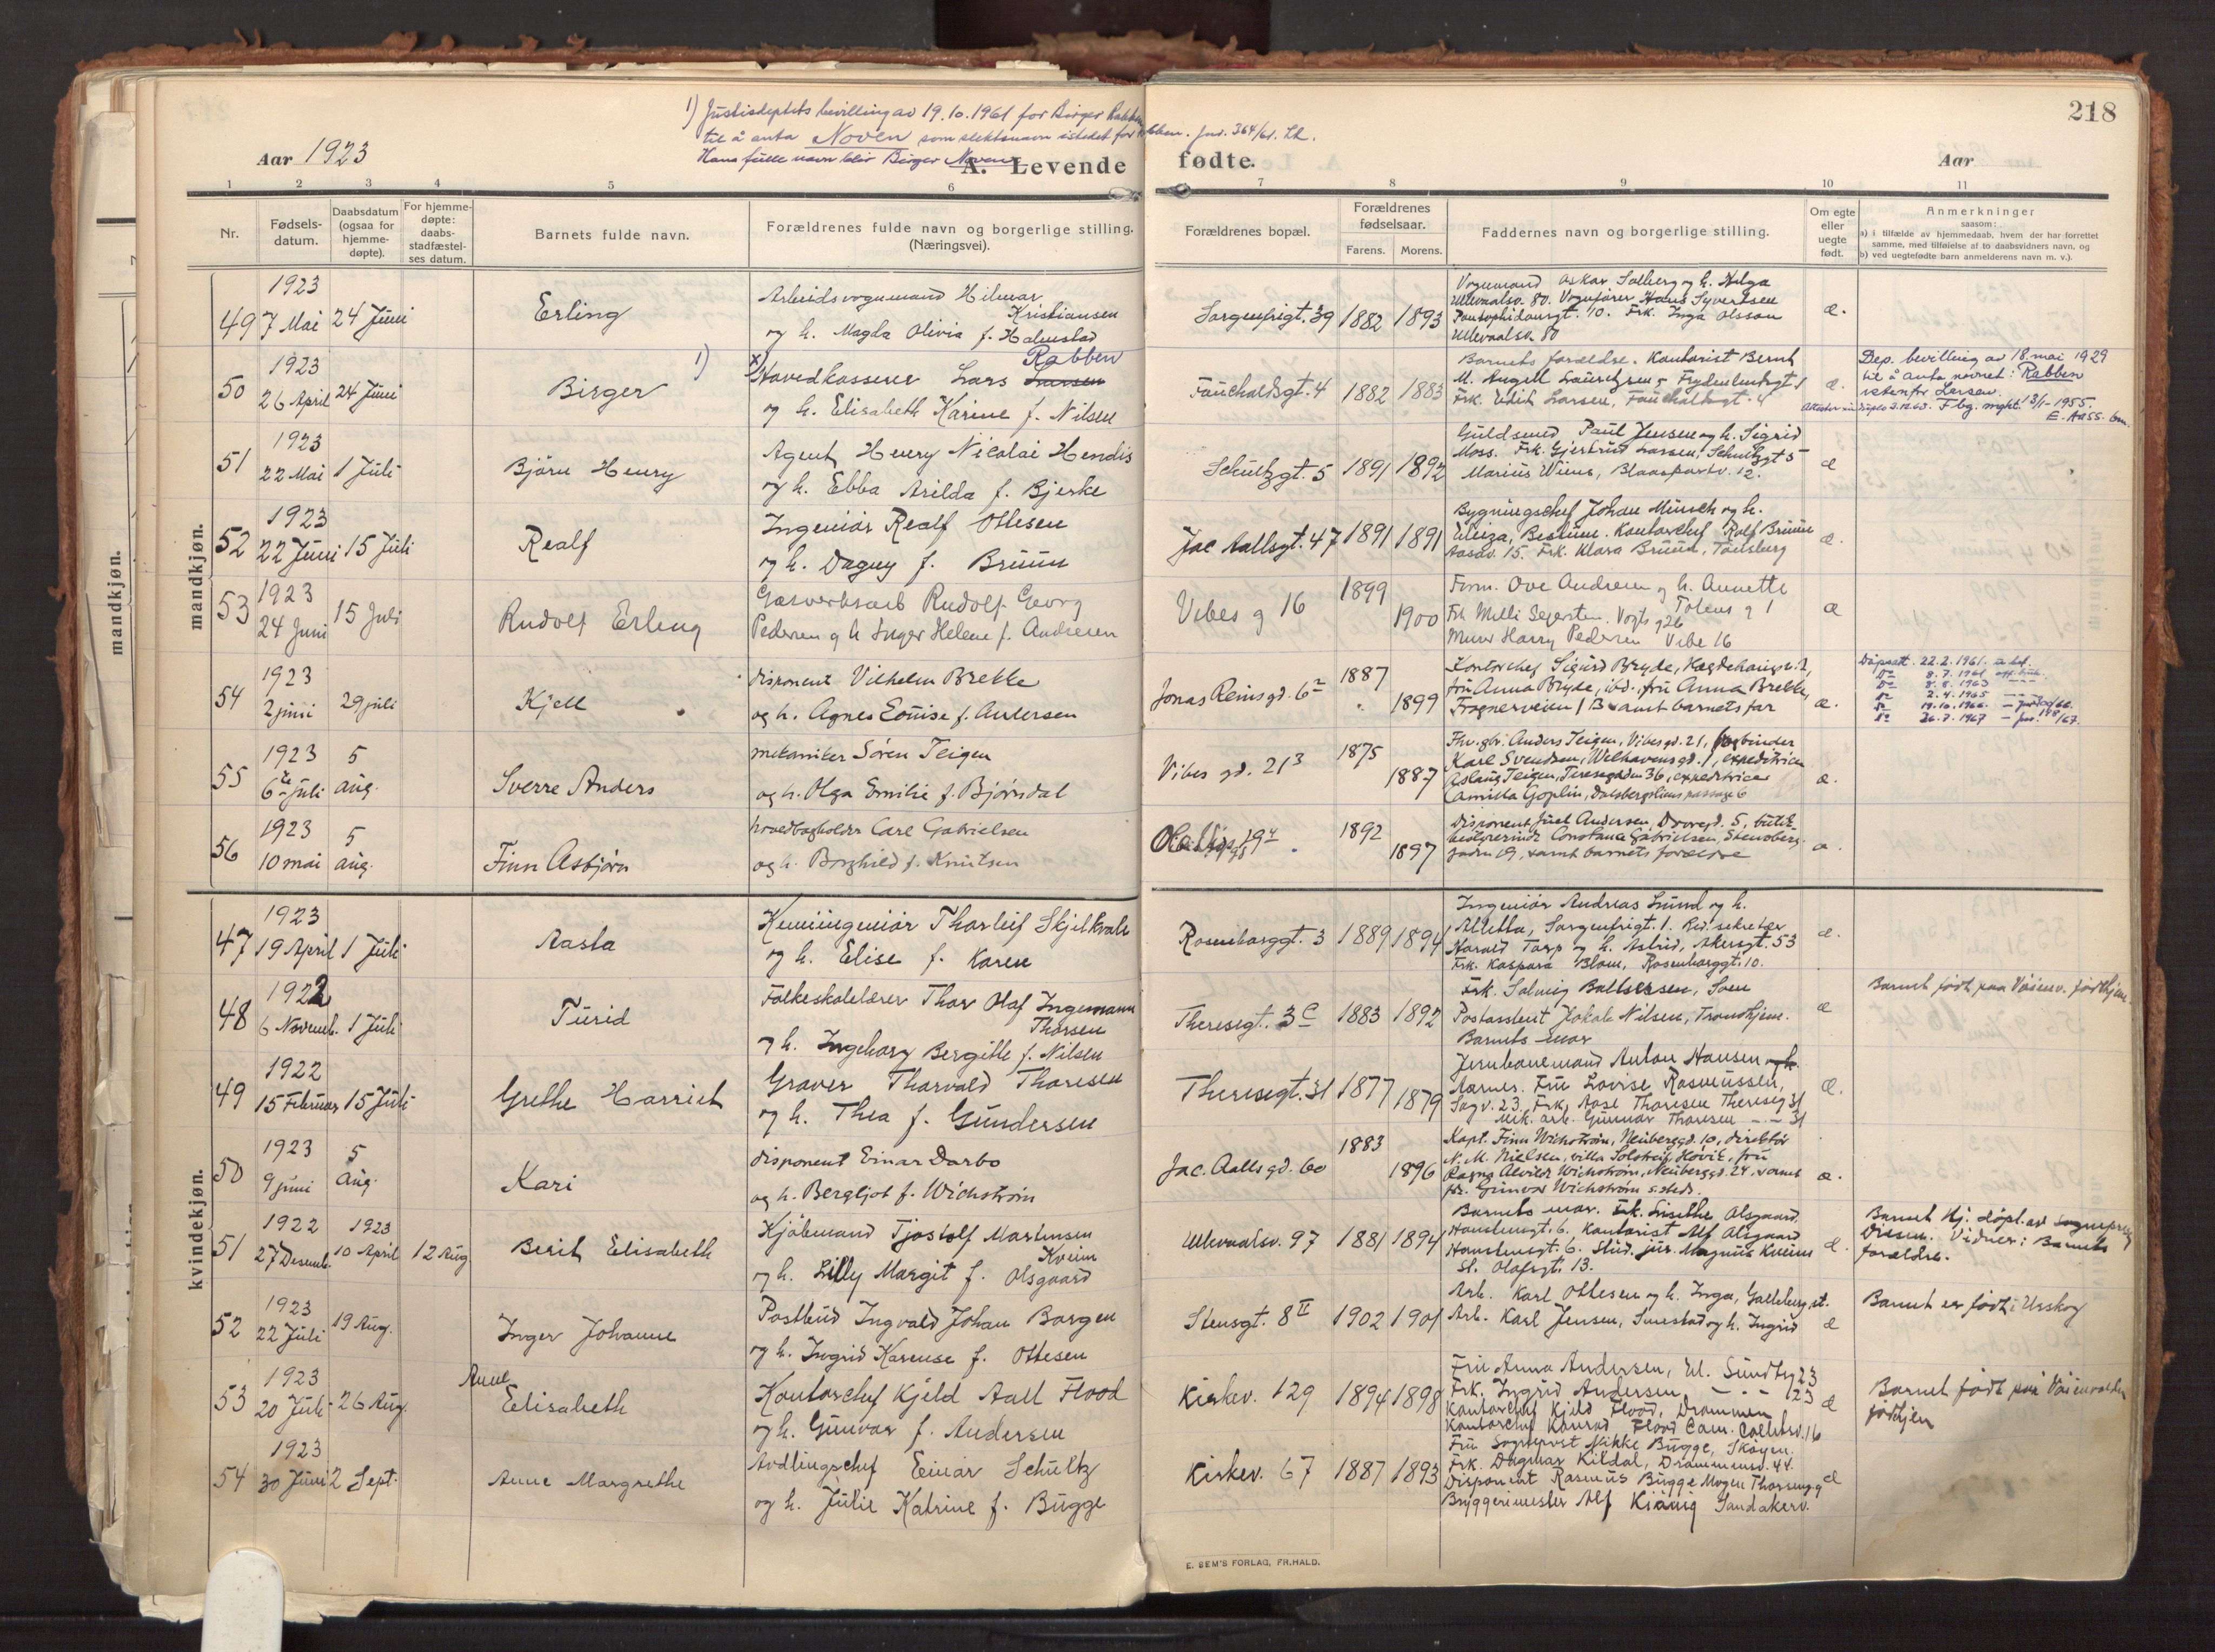 218
1) Justisdeptets bevilling av 19.10.1961 for Birger Rabben
til å anta Noven som slektsnavn istedet for Rabben. Jnr. 364/61.
Hans fulle navn blir Birger Noven
Aar 1923
A. Levende fødte.
Aar
1 2 3 4 5 6 7 8 9 10 11
Nr.
Fødsels-
datum.
Daabsdatum
(ogsaa for
hjemme-
døpte).
For hjemme-
døpte:
daabs-
stadfæstel-
ses datum.
Barnets fulde navn.
Forældrenes fulde navn og borgerlige stilling.
(Næringsvei).
Forældrenes bopæl.
Forældrenes
fødselsaar.
Farens. Morens.
Faddernes navn og borgerlige stilling.
Om egte
eller
uegte
født.
Anmerkninger
saasom:
a) i tilfælde av hjemmedaab, hvem der har forrettet
samme, med tilføielse af to daabsvidners navn, og
b) ved uegtefødte barn anmelderens navn m. v.).
mandkjøn.
mandkjøn.
1923
49 7 Mai 24 Juni
Erling
Arbeidsvognmand Hilmar
Kristiansen
og h. Magda Olivia f. Halmstad
Sorgenfrigt. 39 1882 1893
Vognmand Oskar Solberg og h. Helga
Ullevaalsv. 80. Vognfører Hans Syvertsen
10. Frk. Inga Olsson
Ullevaalsv. 80
æ.
1923
50 26 April 24 Juni
Birger 1)
x) Rabben
Hovedkasserer Lars Larsen
og h. Elisabeth Karine f. Nilsen
Fauchaldsgt. 4 1882 1883
Barnets forældre. Kontorist Bernt
M. Angell Lauritzsen, Frydenlundsgt 1
Frk. Edith Larsen, Fauchaldsgt. 4
æ.
Dep. bevilling av 18. mai 1929
til å anta navnet: Rabben
istenfor Larsen.
Fbg. mght. 13/1-1955.
E. Aass. bm.
1923
51 22 Mai 1 Juli
Bjørn Henry
Agent Henry Nicolai Hendis
og h. Ebba Arilda f. Bjerke
Schultzgt. 5 1891 1892
Guldsmed Paul Jensen og h. Sigrid
Moss. Frk. Gjertrud Larsen, Schultzgt 5
Marius Wiens, 12.
æ
1923
52 22 Juni 15 Juli
Realf
Ingeniør Realf Ottesen
og h. Dagny f. Bruun
Jac Aallsgt. 47 1891 1891
Bygningschef Johan Münsch og h.
Eliza, Bestum. Kontorchef Rolf Bruun
Aasav. 15. Frk. Klara Bruun, Tønsberg
æ.
1923
53 24 Juni 15 Juli
Rudolf Erling
Gasverksarb Rudolf Georg
Pedersen og h Inger Helene f. Andresen
Vibes g 16 1899 1900
Form. Ove Andresen og h. Annette
Tøiens g 1
Frk Milli Segersten. Vogts g 26
Murer Harry Pedersen Vibe 16
æ
1923
54 2 juni 29 juli
Kjell
disponent Vilhelm Brekke
og h. Agnes Louise f. Andersen
Jonas Reins gd. 6 1887 1899
Kontorchef Sigurd Bryde, Hægdehaugsv. 2,
fru Anna Bryde, ibd., fru Anna Brekke,
Frognerveien 1 B samt barnets far
æ.
Dåpsatt. 22.2.1961.
Do 8.7.1961
Do 8.8.1963
Do 2.4.1965
Do 19.10.1966
Do 26.7.1967
1923 5
55 6te juli aug.
Sverre Anders
mekaniker Søren Teigen
og h. Olga Emilie f. Bjørndal
Vibes gd. 21 3 1875 1887
Anders Teigen, Vibesgd. 21, bogbinder
Karl Svendsen, Welhavensgd. 1, expeditrice
Aslaug Teigen, Teresegaden 36, expeditrice
Camilla Goplin, Dalsbergstiens passage 6
æ.
1923 5
56 10 mai aug.
Finn Asbjørn
hovedbogholder Carl Gabrielsen
og h. Borghild f. Knutsen
19 1892 1897
Disponent Juel Andersen, Dovregd. 5, butik-
bestyrerinde Constance Gabrielsen, Stensberg-
gaden 19, samt barnets forældre
æ.
kvindekjøn.
1923
47 19 April 1 Juli
Aasta
Kemiingeniør Thorleif Skjelkvale
og h. Elise f. Karen
Rosenborggt. 3 1889 1894
Ingeniør Andreas Lund og h.
Alletta, Sorgenfrigt. 1. Red. sekretær
Harald Torp og h. Astrid, Akersgt. 53
Frk. Kaspara Blom, Rosenborggt. 10.
æ.
1922
48 6 Novemb. 1 Juli
Turid
Folkeskolelærer Thor Olaf Ingemann
Thorsen
og h. Ingeborg Bergithe f. Nilsen
Theresegt. 3 C 1883 1892
Frk. Solveig Baltsersen, Soon
Postassistent Jakob Nilsen, Trondhjem.
Barnets mor
æ
Barnet født paa Voienv. fødehjem.
1922
49 15 Februar 15 Juli
Grethe Harriet
Graver Thorvald Thoresen
og h. Thea f. Gundersen
Theresegt. 31 1877 1879
Jernbanemand Anton Hansen og h.
Aarnes. Fru Lovise Rasmussen,
Sagv. 23. Frk. Aase Thoresen Theresegt 31
Mek. arb. Gunnar Thoresen - - 31
æ.
1923 5
50 9 juni Aug.
Kari
disponent Einar Darbo
og h. Bergljot f. Wichstrøm
Jac. Aalls gd. 60 1883 1896
Kapt. Finn Wichstrøm, Neuberggd. 10, direktør
N. M. Nielsen, villa Solstreif, Høvik, fru
Ragna Alvilde Wichstrøm, Neuberggd. 24, samt
frk. Gunvor Wichstrøm s. steds.
æ.
1922 1923
51 27 Desemb. 10 April 12 Aug
Berit Elisabeth
Kjøbmand Tjostolf Martinsen
Kveim
og h. Lilly Margit f. Olsgaard
Ullevaalsv. 97 1881 1894
Barnets mor. Frk. Lisethe Olsgaard
Hansteensgt. 6, Kontorist Alf Olsgaard
Hansteensgt. 6. Stud. jur. Magnus Kveim
St. Olafsgt. 13.
æ.
Barnet Hj. døpt av Sogneprest
Vidner: Barnets
forældre.
1923
52 22 Juli 19 Aug.
Inger Johanne
Postbud Ingvald Johan Borgen
og h. Ingrid Karense f. Ottesen
Stensgt. 8 II 1902 1901
Arb. Karl Ottesen og h. Inga, Galleberg st.
Arb. Karl Jensen, Smestad og h. Ingrid
æ
Barnet er født i Urskog
1923
53 20 Juli 26 Aug.
Anne
Elisabeth
Kontorchef Kjeld Aall Flood
og h. Gunvor f. Andersen
Kirkev. 129 1894 1898
Fru Anna Andersen, Ul. Sundby 23
Frk. Ingrid Andersen - - - 23
Kontorchef Kjeld Flood, Drammen
Kontorchef Konrad Flood Cam. Collettsv. 16
æ
Barnet født paa Voienvolden
fødehjem
1923
54 30 Juni 2 Sept.
Anne Margrethe
Avdlingschef Einar Schultz
og h. Julie Katrine f. Bugge
Kirkev. 67 1887 1893
Fru Sogneprest Mikke Bugge, Skøyen.
Frk. Dagmar Kildal, Drammensv. 44.
Disponent Rasmus Bugge Mogen Thorsensg
Bryggerimester Alf Kiønig Sandakerv.
æ
E. SEM'S FORLAG, FR.HALD.